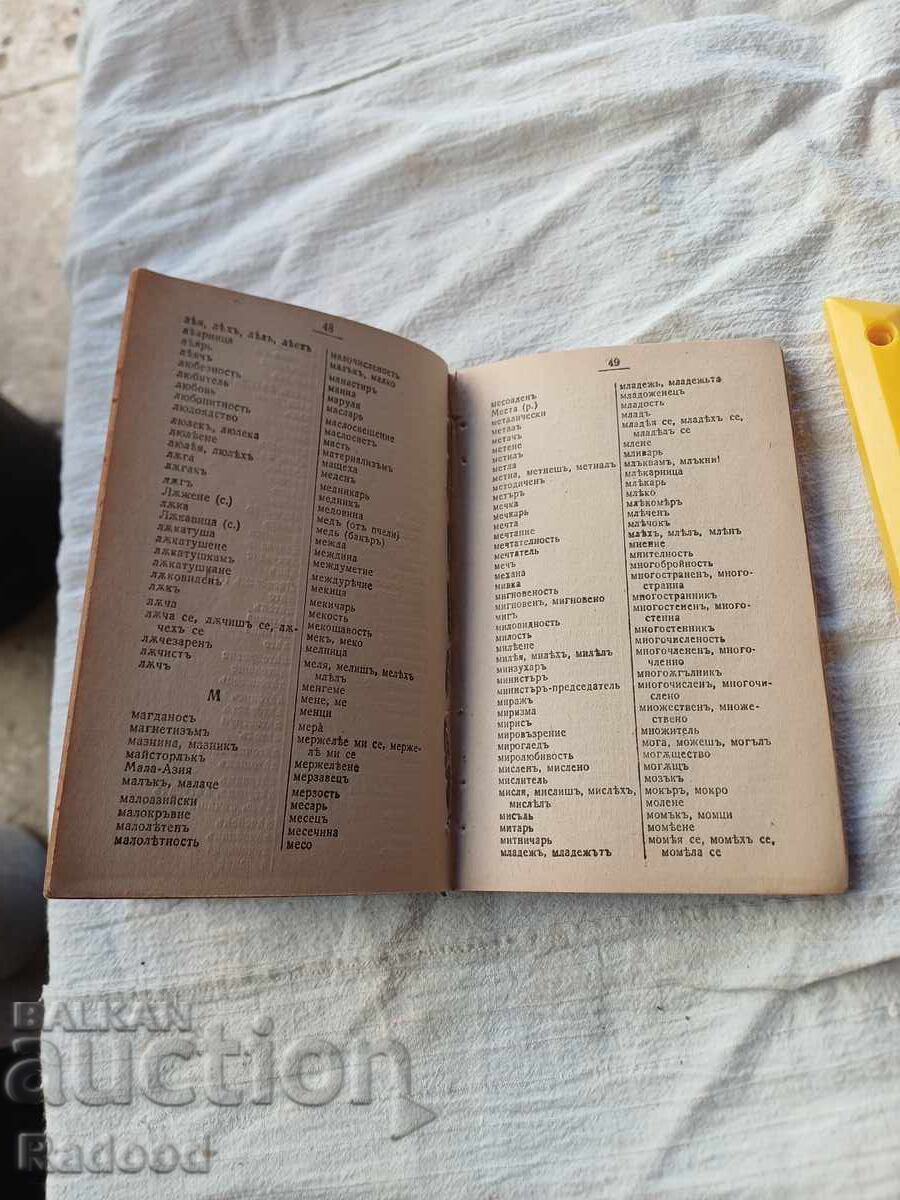 48
лѣя, лѣхъ, лѣлъ, лѣстъ
лѣарница
лѣярь
лѣячъ
любезность
любитель
любовь
любопитность
людоядство
люлек, люлека
люлѣене
люлѣя, люлѣхъ
лѫга
лѫгакъ
лѫгъ
Лѫжене (с.)
лѫжа
Лѫкавица (с.)
лѫкатуша
лѫкатушене
лѫкатушкамъ
лѫкатушкане
лѫковиленъ
лѫкъ
лѫча
лѫча се, лѫчишъ се, лѫ-
чехъ се
лѫчезаренъ
лѫчистъ
лѫчъ
М
магданосъ
магнетизъмъ
мазнина, мазникъ
майсторлъкъ
Мала-Азия
малъкъ, малаче
малоазийски
малокръвие
малолѣтенъ
малолѣтность
малочисленость
малъкъ, малко
манастиръ
манна
маруля
масларь
маслосвещение
маслосветъ
масть
материализъмъ
мащеха
меденъ
медникарь
медникъ
меловина
медъ (отъ пчели)
медь (бакъръ)
межда
междина
междуметие
междурѣчие
мекица
мекичарь
мекость
мекошавость
мекъ, меко
мелница
меля, мелишъ, мелѣхъ
млѣлъ
менгеме
мене, ме
менци
мерà
мержелѣе ми се, мерже-
лѣ ми се
мержелѣене
мерзавецъ
мерзость
месарь
месецъ
месечина
месо
49
месоаденъ
Места (р.)
металически
металъ
метачъ
метене
метилъ
метла
метна, метнешъ, метналъ
методиченъ
метъръ
мечка
мечкарь
мечта
мечтание
мечтателность
мечтатель
мечъ
механа
мивка
мигновеность
мигновен, мигновено
мигъ
миловидность
милость
милѣене
милѣя, милѣхъ, милѣлъ
минзухаръ
министъръ
министъръ-председатель
миражъ
миризма
мирисъ
мировъзрение
мирогледъ
миролюбивость
мисленъ, мислено
мислитель
мисля, мислишъ, мислѣхъ,
мислѣлъ
мисъль
митарь
митничарь
младежъ, младежътъ
младежь, младежьта
младоженецъ
младость
младъ
младѣя се, младѣхъ се,
младѣлъ се
млене
мливарь
млъквамъ, млъкни!
млѣкарница
млѣкарь
млѣко
млѣкомѣръ
млѣченъ
млѣчокъ
млѣхъ, млѣлъ, млѣнъ
мнение
мнителность
многобройность
многостраненъ, много-
странна
многостранникъ
многостененъ, много-
стенна
многостенникъ
многочисленость
многочлененъ, много-
членно
многоѫгълникъ
многочисленъ, многочи-
слено
множественъ, множе-
ствено
множитель
мога, можешъ, могълъ
могѫщество
могѫщъ
мозъкъ
мокъръ, мокро
молене
момъкъ, момци
момѣене
момѣя се, момѣхъ се,
момѣла се
BALKAN
auction
Radood